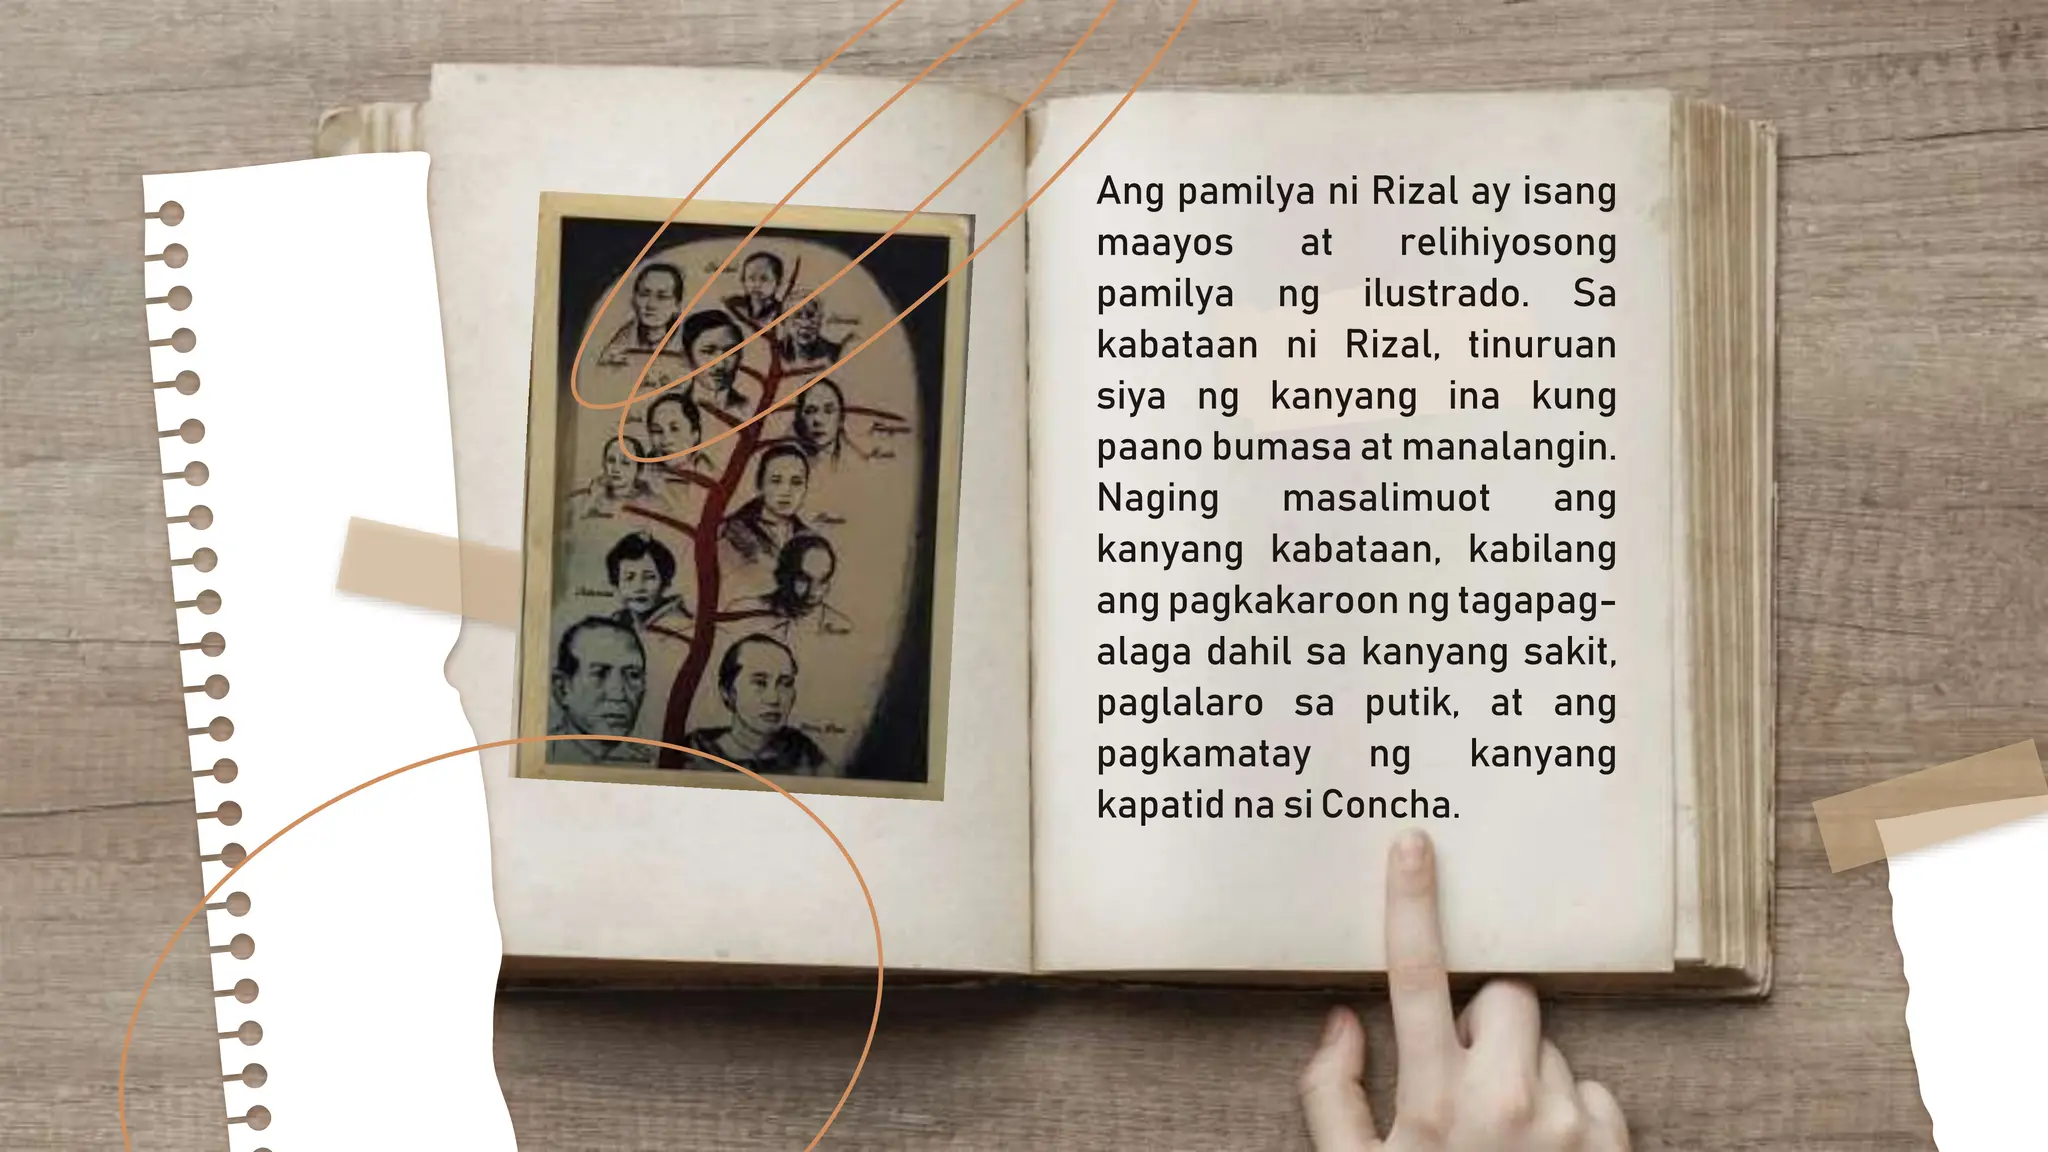 Ang pamilya ni Rizal ay isang
maayos at relihiyosong
pamilya ng ilustrado. Sa
kabataan ni Rizal, tinuruan
siya ng kanyang ina kung
paano bumasa at manalangin.
Naging masalimuot ang
kanyang kabataan, kabilang
ang pagkakaroon ng tagapag-
alaga dahil sa kanyang sakit,
paglalaro sa putik, at ang
pagkamatay ng kanyang
kapatid na si Concha.